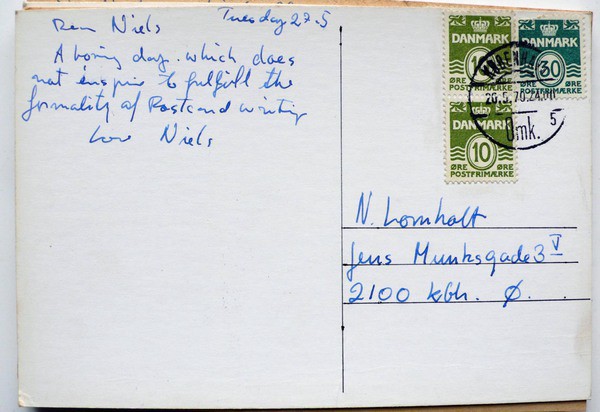 Tuesday 27.5
Dear Niels
A boring day. which does
not inspire to fulfill the
formality of Postcard writing
Love Niels
DANMARK
10
ØRE
POSTFRIMÆRKE
DANMARK
30
ØRE
POSTFRIMÆRKE
DANMARK
10
ØRE
POSTFRIMÆRKE
26.5.76.24
Omk. 5
N. Lomholt
Jens Munksgade 3 V
2100 kbh. Ø.